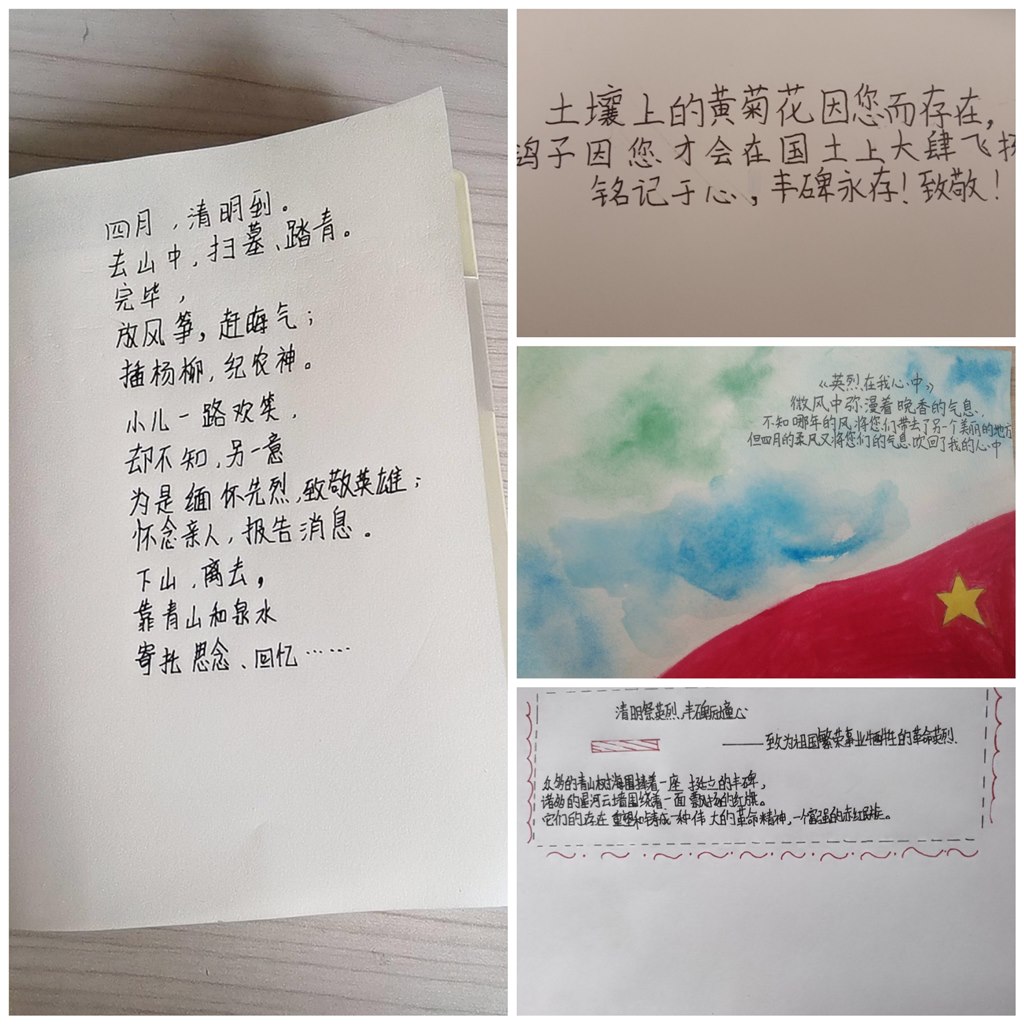 四月，清明到。
去山中，扫墓、踏青。
完毕，
放风筝，赶晦气；
插杨柳，纪农神。
小儿一路欢笑，
却不知，另一意
为是缅怀先烈，致敬英雄；
怀念亲人，报告消息。
下山，离去，
靠青山和泉水
寄托思念、回忆……
土壤上的黄菊花因您而存在，
鸽子因您才会在国土上大肆飞扬
铭记于心，丰碑永存！致敬！
《英烈在我心中》
微风中弥漫着晚香的气息，
不知哪年的风将您们带去了另一个美丽的地方
但四月的柔风又将您们的气息吹回了我的心中
清明祭英烈，丰碑励童心
——致为祖国繁荣事业牺牲的革命英烈
众多的青山树海围绕着一座挺立的丰碑，
诸多的星河云墙围绕着一面飘扬的红旗。
它们的存在重塑和铸成一种伟大的革命精神，一个富强的赤红民族。